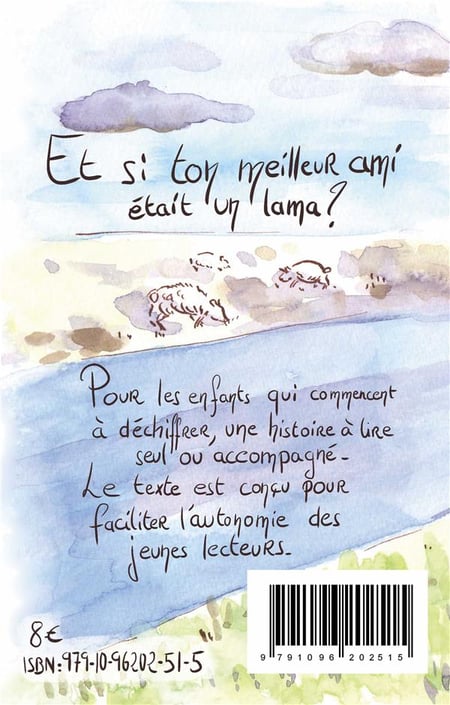 Et si ton meilleur ami
était un lama ?
Pour les enfants qui commencent
à déchiffrer, une histoire à lire
seul ou accompagné-
Le texte est conçu pour
faciliter l'autonomie des
jeunes lecteurs-
8€
ISBN: 979-10-96202-51-5
9 791096 202515